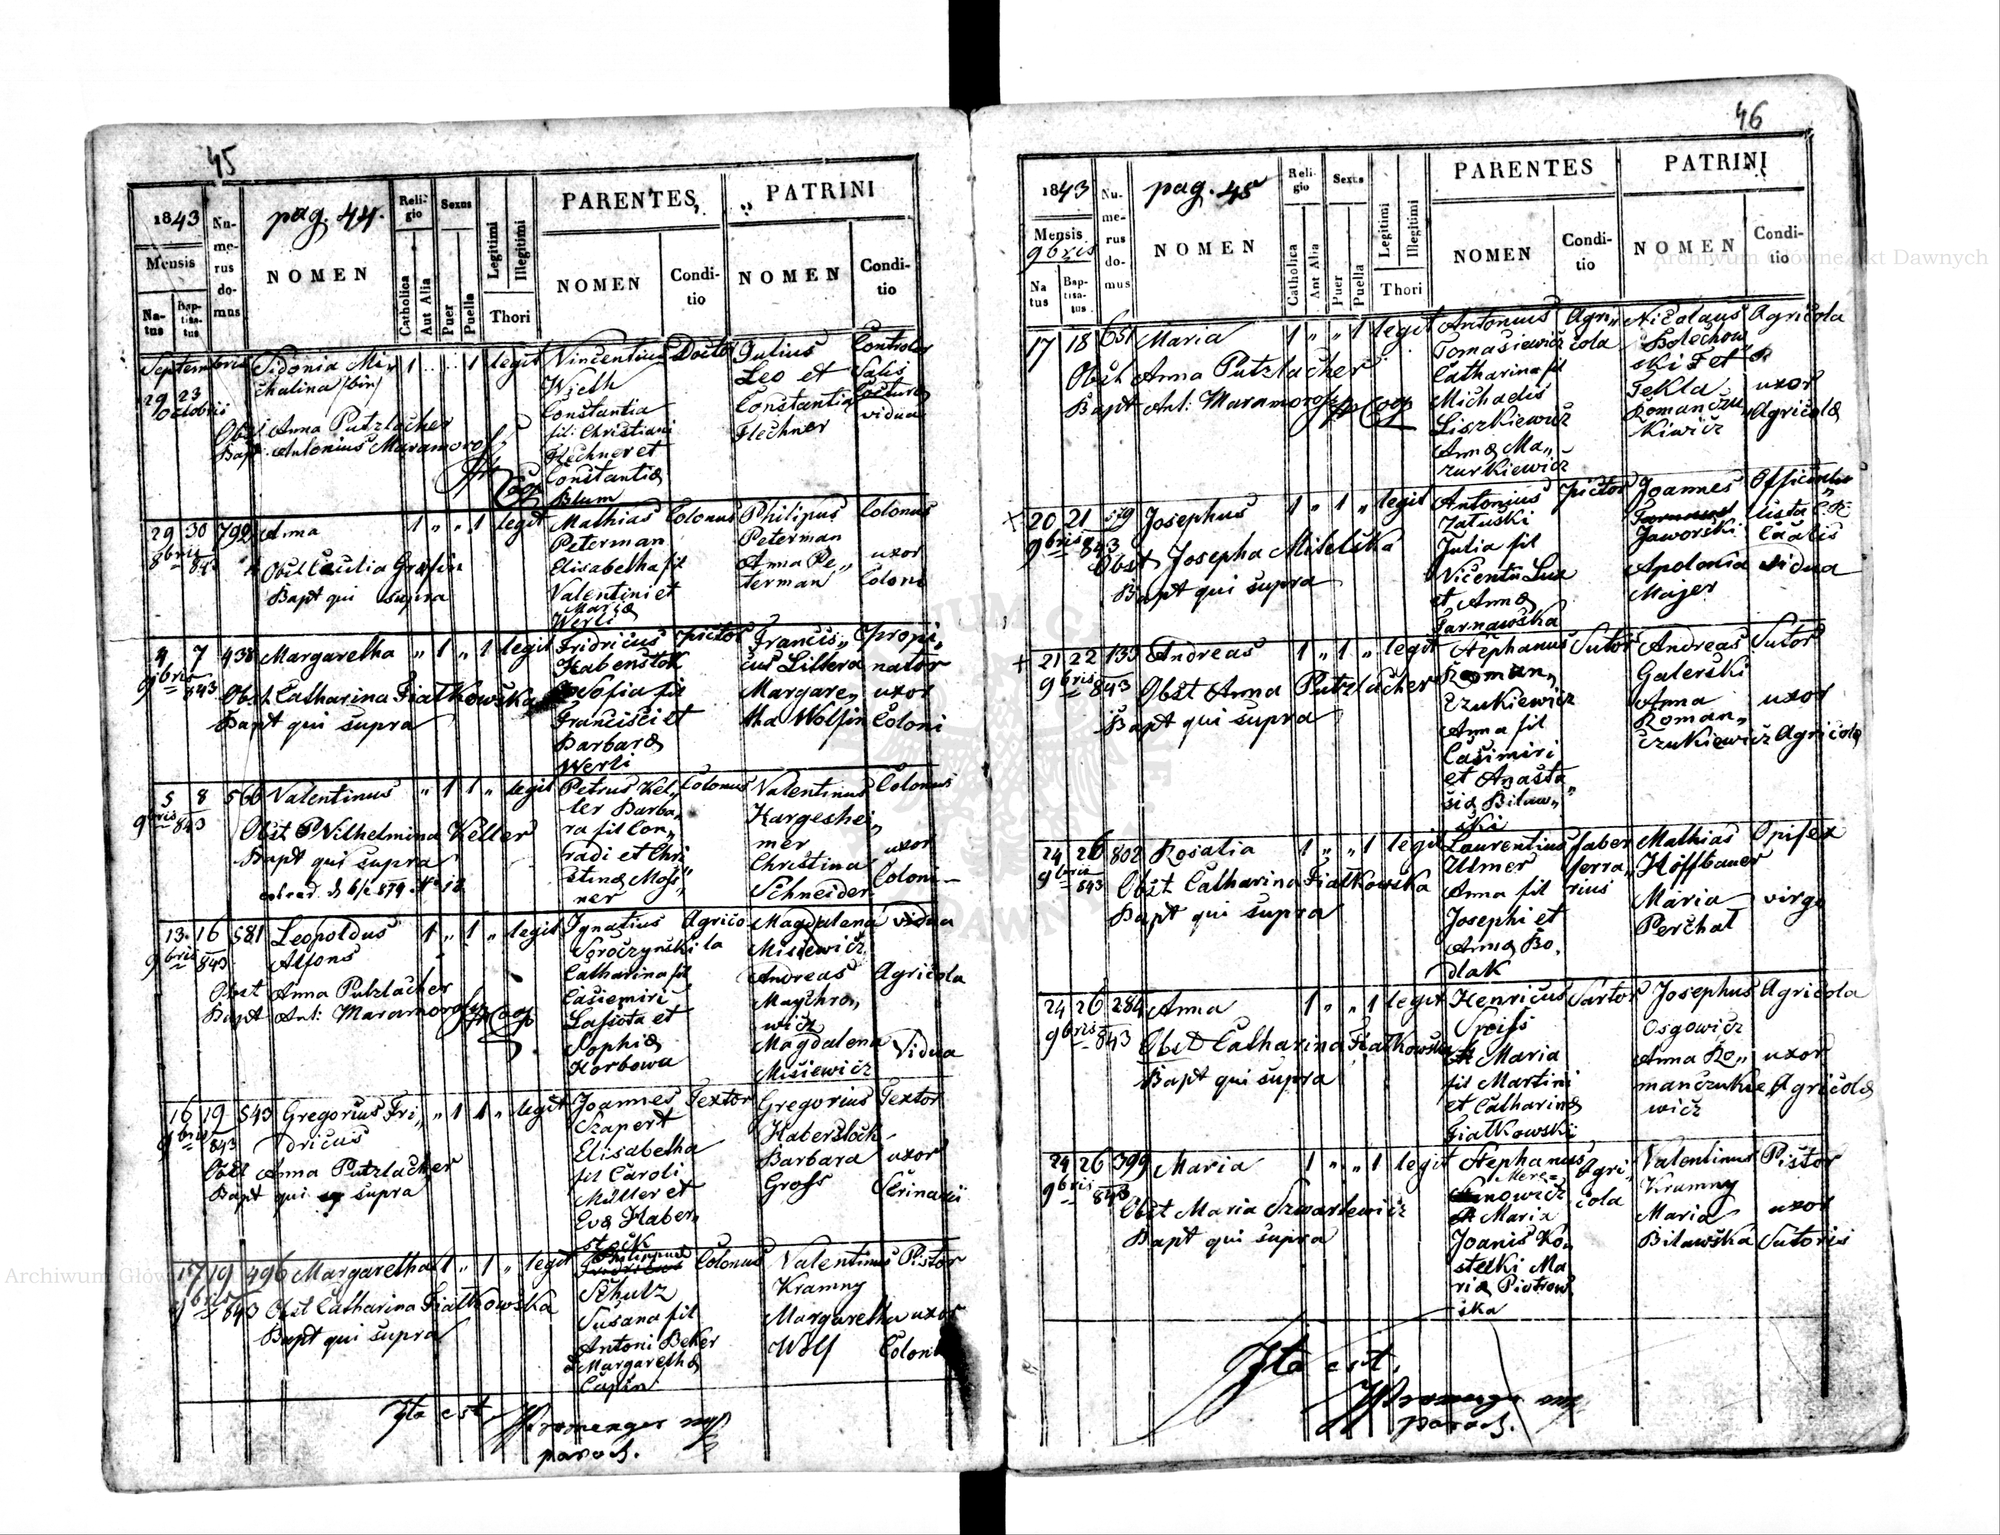 45
1843
pag. 44.
Numerus domus
NOMEN
Religio
Catholica
Aut Alia
Sexus
Puer
Puella
Legitimi
Illegitimi
Thori
PARENTES
NOMEN
Conditio
PATRINI
NOMEN
Conditio
Mensis
Natus
Baptisatus
Septembris Sidonia Mi- 1 1 legit Vincentius Doctor Julius Controlor
chalina (bin)
29 23
Octobris
Wieth Leo et Salis
Constantia Constantia Cocturae
fil: Christiani Flechner vidua
Obst Anna Putzlacher
Bapt. Antonius Maramorosz
Flechner et
Constantiae
Blum
29 30 792 Anna 1 " " 1 legit Mathias Colonus Philipus Colonus
8bris 843
Peterman Peterman
Obst Caecilia Grafin Elisabetha fil Anna Pe- uxor
Bapt qui supra Valentini et terman Coloni
Mariae
Werli
4 7 438 Margaretha " 1 " 1 legit Fridricus pictor Francis- Propi-
9bris 843
Haberstok cus Littera nator
Obst Catharina Fiatkowska Sofia fil Margare- uxor
Bapt qui supra Francisci et tha Wolfin Coloni
Barbarae
Werli
5 8 566 Valentinus " 1 1 " legit Petrus Kel- Colonus Valentinus Colonus
9bris 843
ter Barba- Hargeshei-
Obst Wilhelmina Keller ra fil Con- mer
Bapt qui supra radi et Chri Christina uxor
stinae Moss- Schneider Coloni
ner
13. 16 581 Leopoldus 1 " 1 " legit Ignatius Agrico Magdalena vidua
9bris 843
Alfons Soroczynski la Misiewicz
Catharina fil Andreas Agricola
Obst Anna Putzlacher Casiemiri Maythro-
Bapt Ant: Maramorosz Coop Lasiota et wicz
Sophiae Magdalena Vidua
Horbowa Misiewicz
16 19 543 Gregorius Fri- " 1 1 " legit Joannes Textor Gregorius Textor
9bris 843
dricus Szapert Haberstock
Elisabetha Barbara uxor
Obst Anna Putzlacher fil Caroli Gross
Bapt qui supra Müller et
Evae Haber-
stock
17 19 496 Margaretha 1 " 1 " legit Philippus Colonus Valentinus Pistor
9bris 843
Schutz Kramny
Obst Catharina Fiatkowska Susana fil Margaretha uxor
Bapt qui supra Antoni Beker Wolf Coloni
Margarethae
Capin
Ita est
paroch.
46
1843
pag. 45
Numerus domus
NOMEN
Religio
Catholica
Aut Alia
Sexus
Puer
Puella
Legitimi
Illegitimi
Thori
PARENTES
NOMEN
Conditio
PATRINI
NOMEN
Conditio
Mensis
9bris
Natus
Baptisatus
17 18 651 Maria 1 " " 1 legit Antonius Agri- Nicolaus Agricola
Tomasiewicz cola Bolechow
Obst Anna Putzlacher Catharina fil ski et
Bapt Ant: Maramorosz Coop Michaelis Tekla uxor
Liszkiewicz Romanczu Agricolae
Annae Ma- kiwicz
zurkiewicz
20 21 579 Josephus 1 " 1 " legit Antonius pictor Joannes
9bris 843
Zatuski
Obst Josepha Mitelska Julia fil Jaworski
Bapt qui supra Vicentii Lux Apolonia vidua
et Annae Majer
Tarnawska
21 22 133 Andreas 1 " 1 " legit Stephanus Sutor Andreas Sutor
9bris 843
Roman- Galerski
Obst Anna Putzlacher czukiewicz Anna uxor
Bapt qui supra Anna fil Roman-
Casimiri czukiewicz Agricolae
et Anasta-
siae Bilaw-
ski
24 26 802 Rosalia 1 " " 1 legit Laurentius faber Mathias Opifex
9bris 843
Ulmer ferra- Hoffbauer
Obst Catharina Fiatkowska Anna fil rius Maria virgo
Bapt qui supra Josephi et Perchal
Annae Bo-
dlak
24 26 284 Anna 1 " " 1 legit Henricus Sartor Josephus Agricola
9bris 843
Speiss Osgowicz
Obst Catharina Fiatkowska Maria Anna Ro- uxor
Bapt qui supra fil Martini manczukie Agricolae
et Catharinae wicz
Fiatkowski
24 26 399 Maria 1 " " 1 legit Stephanus Agri- Valentinus Pistor
9bris 843
cola Kramny
Obst Maria Szwartewicz Maria Maria uxor
Bapt qui supra Joanis Ko- Bilawska Sutoris
stecki Ma
riae Piotrow
ska
Ita est.
paroch.
Archiwum Główne Akt Dawnych